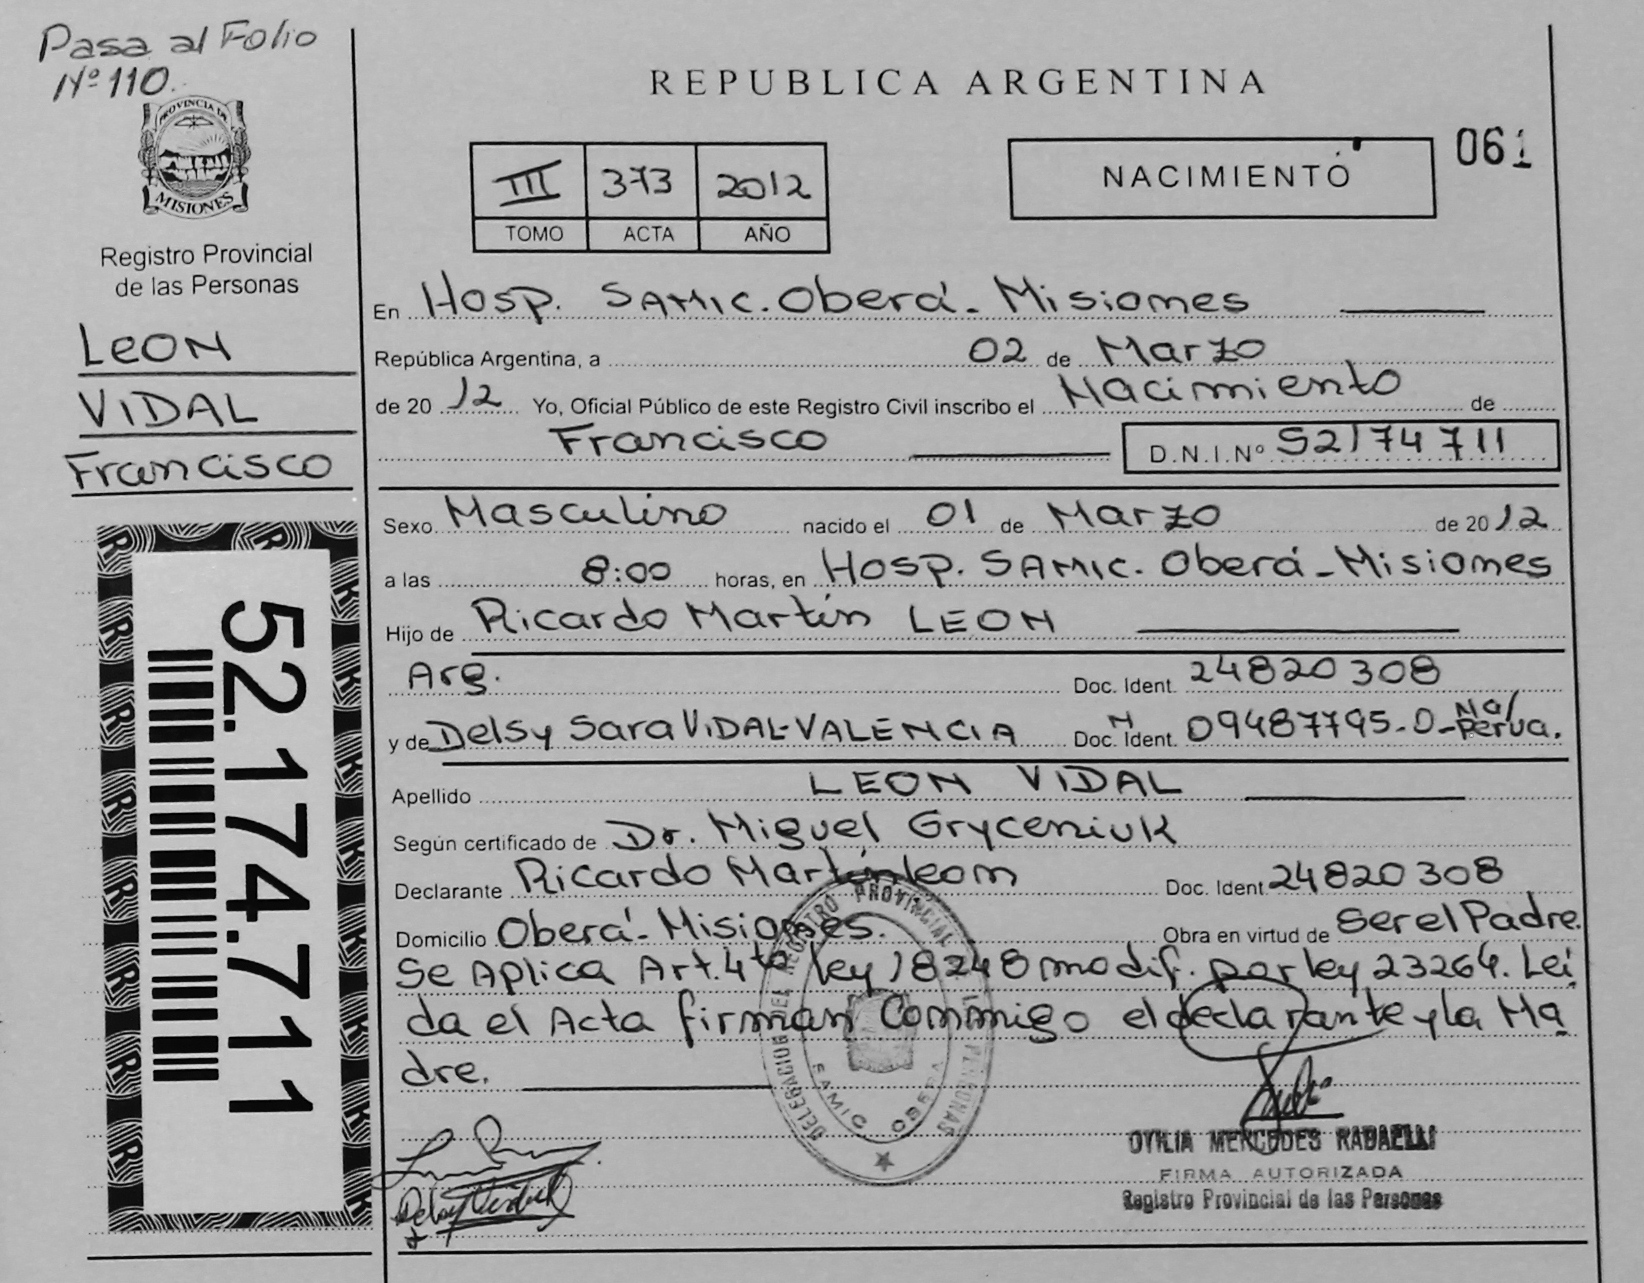 Pasa al Folio
Nº 110.
PROVINCIA DE
MISIONES
Registro Provincial
de las Personas
LEON
VIDAL
Francisco
52.174.711
REPUBLICA ARGENTINA
III 373 2012
TOMO ACTA AÑO
NACIMIENTO
061
En Hosp. SAMIC. Oberá - Misiones
República Argentina, a 02 de Marzo
de 20 12 Yo, Oficial Público de este Registro Civil inscribo el Nacimiento de
Francisco D.N.I.Nº 52174711
Sexo Masculino nacido el 01 de Marzo de 20 12
a las 8:00 horas, en Hosp. SAMIC. Oberá - Misiones
Hijo de Ricardo Martín LEON
Arg. Doc. Ident. 24820308
y de Delsy Sara VIDAL-VALENCIA Doc. N Ident. 09487795-0- Na/ Perua.
Apellido LEON VIDAL
Según certificado de Dr. Miguel Gryceniuk
Declarante Ricardo Martín Leon Doc. Ident 24820308
Domicilio Oberá - Misiones. Obra en virtud de Ser el Padre.
Se Aplica Art. 4to ley 18248 modif. por ley 23264. Lei
da el Acta firman Conmigo el declarante y la Ma
dre.
DELEGACION DEL REGISTRO PROVINCIAL PERSONAS
SAMIC OBERA
OVILIA MERCEDES RABAELLI
FIRMA AUTORIZADA
Registro Provincial de las Personas